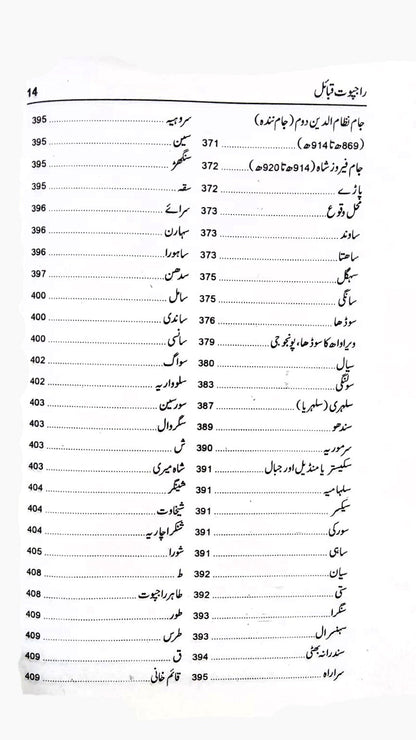 راجپوت قبائل
14
جام نظام الدین دوم (جام نندہ)
(869ھ تا 914ھ) ........ 371
جام فیروز شاہ (914ھ تا 920ھ) ........ 372
پاڑے ........ 372
محل وقوع ........ 373
ساوند ........ 373
ساھتا ........ 373
سہگل ........ 375
سانگی ........ 375
سوڈھا ........ 376
ویراداھ کا سوڈھا، پونجوجی ........ 379
سیال ........ 380
سولنگی ........ 383
سلہری (سلہریا) ........ 387
سندھو ........ 389
سرموریہ ........ 390
سکیسر یا منڈیل اور جبال ........ 391
سلہامیہ ........ 391
سیکسر ........ 391
سورکی ........ 391
ساہی ........ 391
سیان ........ 392
ستی ........ 392
سنگرا ........ 393
سبنسرال ........ 393
سندرانہ بھٹی ........ 394
سراراہ ........ 395
سروہیہ ........ 395
سین ........ 395
سنگھڑ ........ 395
سقہ ........ 395
سرائے ........ 396
سہارن ........ 396
ساہورا ........ 396
سدھن ........ 397
سائل ........ 400
ساندی ........ 400
سانسی ........ 400
سواگ ........ 402
سلوواریہ ........ 402
سورسین ........ 403
سنگروال ........ 403
ش ........ 403
شاہ میری ........ 403
شینگر ........ 404
شیخاوت ........ 404
شنکراچاریہ ........ 404
شورا ........ 405
ط ........ 408
طاہر راجپوت ........ 408
طور ........ 409
طرس ........ 409
ق ........ 409
قائم خانی ........ 409